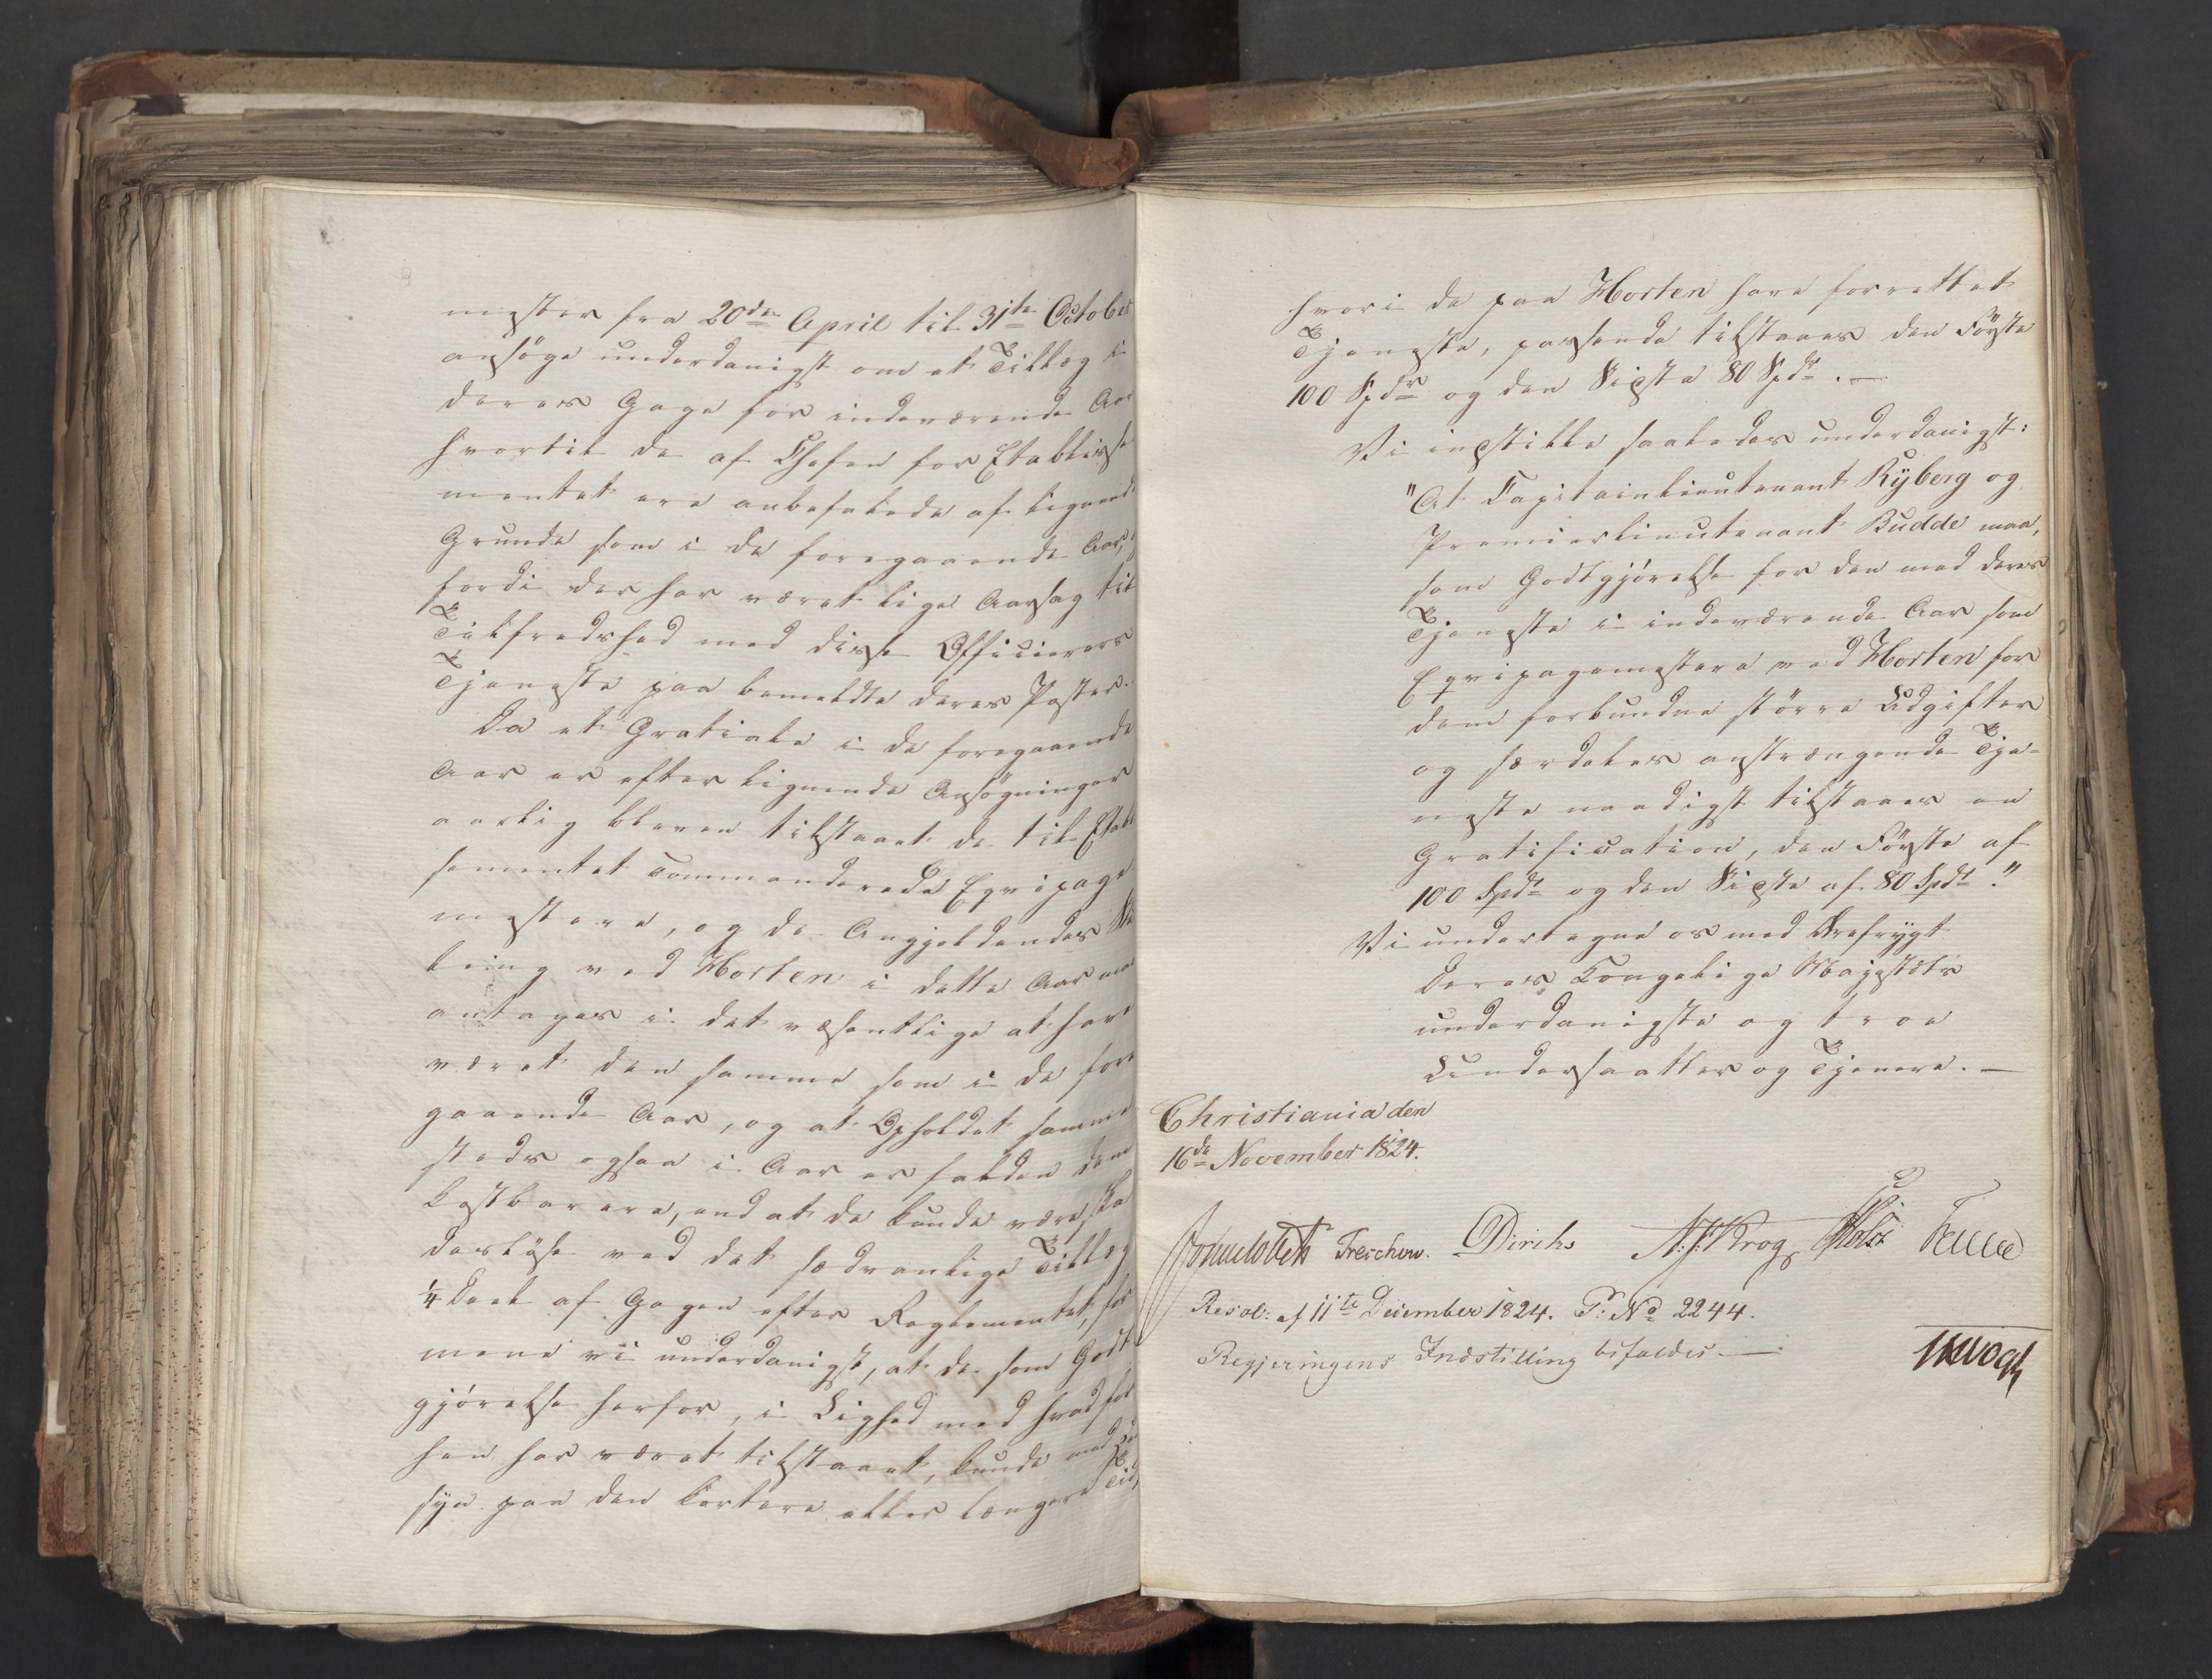 mester fra 20de April til 31te October
ansøge underdanigst om et Tillæg i
deres Gage for indeværende Aar
hvortil de af Chefen for Etablisse
mentet ere anbefalede af lignende
Grunde som i de foregaaende Aar,
fordi der har været lige Aarsag til
Tilfredshed med disse Officierers
Tjeneste paa bemeldte deres Poster.
Da et Gratiale i de foregaaende
Aar er efter lignende Ansøgninger
aarlig bleven tilstaaet de til Etabl
sementet commanderede Eqvipage
mestere, og de Angjeldendes
ling ved Horten i dette Aar maa
antages i det væsentlige at have
været den samme som i de fore
gaaende Aar, og at Opholdet samme
steds ogsaa i Aar er falden dem
kostbarere, end at de kunde være ska
desløse ved det sædvanlige Tillæg
1/4 Deel af Gagen efter Reglementet, for
mene vi underdanigst, at de som Godt
gjørelse herfor, i Lighed med hvad for
hen har været tilstaaet, kunde med Hen
syn paa den kortere eller længere Tid,
hvori de paa Horten have forrettet
Tjeneste, passende tilstaaes den Første
100 Spdr og den Sidste 80 Spdr. —
Vi indstille saaledes underdanigst:
"At Capitainlieutenant Ryberg og
Premierlieutenant Budde maa,
som Godtgjørelse for den med deres
Tjeneste i indeværende Aar som
Eqvipagemestere ved Horten for
dem forbundne større Udgifter
og særdeles anstrængende Tje-
neste naadigst tilstaaes en
Gratification, den Første af
100 Spdr og den Sidste af 80 Spdr."
Vi undertegne os med Ærefrygt
Deres Kongelige Majestæts
underdanigste og troe
Undersaatter og Tjenere. —
Christiania den
16de November 1824.
Treschow. Diriks N:J:Krog Holst Fasting
Resol: af 11te December 1824. P: No 2244.
Regjeringens Indstilling bifaldes. —